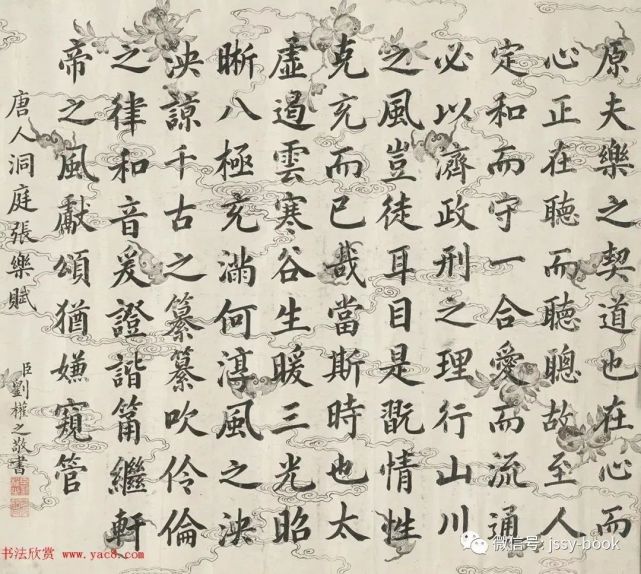 原夫樂之契道也在心而
心正在聽而聽聰故至人
定和而守一合愛而流通
必以濟政刑之理行山川
之風豈徒耳目是翫情性
克充而已哉當斯時也太
虛遏雲寒谷生暖三光昭
晰八極充滿何淳風之泱
泱諒千古之纂纂吹伶倫
之律和音爰證諧繼軒
帝之風獻頌猶嫌窺管
唐人洞庭張樂賦
臣劉權之敬書
书法欣赏 www.yac8.com
微信号: jssy-book